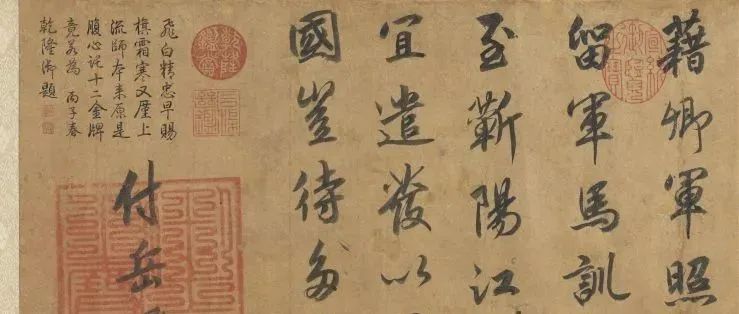 藉卿軍照
留軍馬訓
至蘄陽江
宜遣發以
國豈待多
付岳
飛白精忠早賜
旗霜寒又歷上
流師本來原是
腹心託十二金牌
竟若為 丙子春
乾隆御題